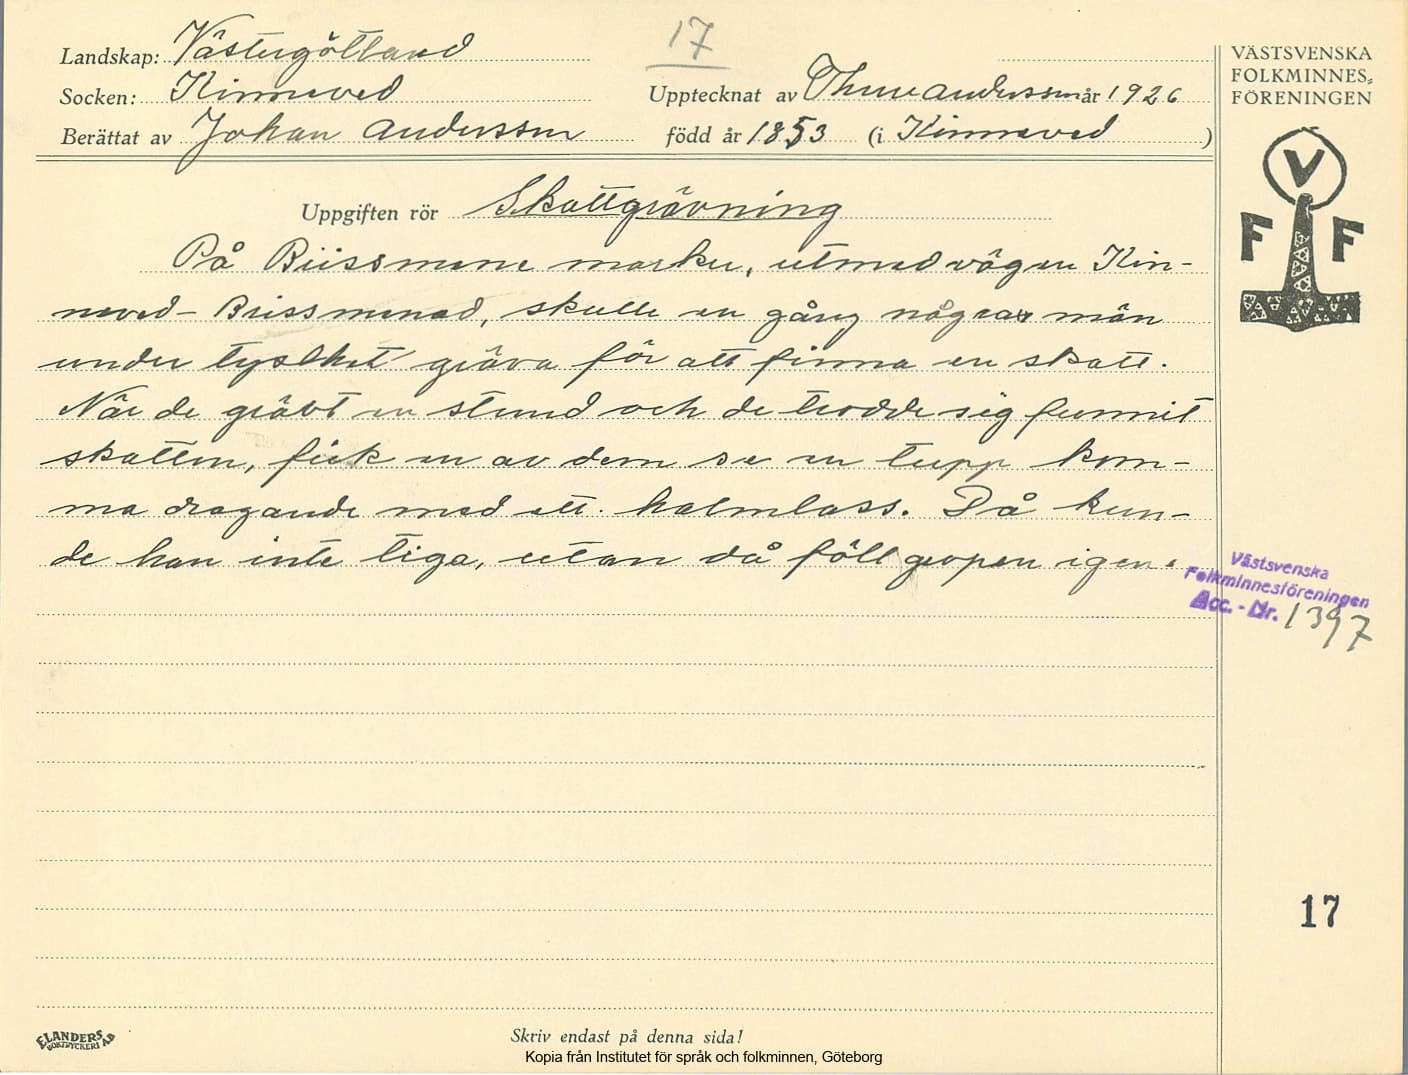 17
Landskap: Västergötland
Socken: Kinneved
Upptecknat av Thure Andersson år 1926
Berättat av Johan Andersson född år 1853 (i Kinneved )
VÄSTSVENSKA
FOLKMINNES-
FÖRENINGEN
V
F F
Uppgiften rör Skattgrävning
På Brissmene marker, utmed vägen Kin-
neved - Brissmened, skulle en gång några män
under tysthet gräva för att finna en skatt.
När de grävt en stund och de trodde sig funnit
skatten, fick en av dem se en tupp kom-
ma dragande med ett halmlass. Då kun-
de han inte tiga, utan då föll gropen igen.
Västsvenska
Folkminnesföreningen
Acc. - Nr. 1397
17
ELANDERS
BOKTRYCKERI AB
Skriv endast på denna sida!
Kopia från Institutet för språk och folkminnen, Göteborg